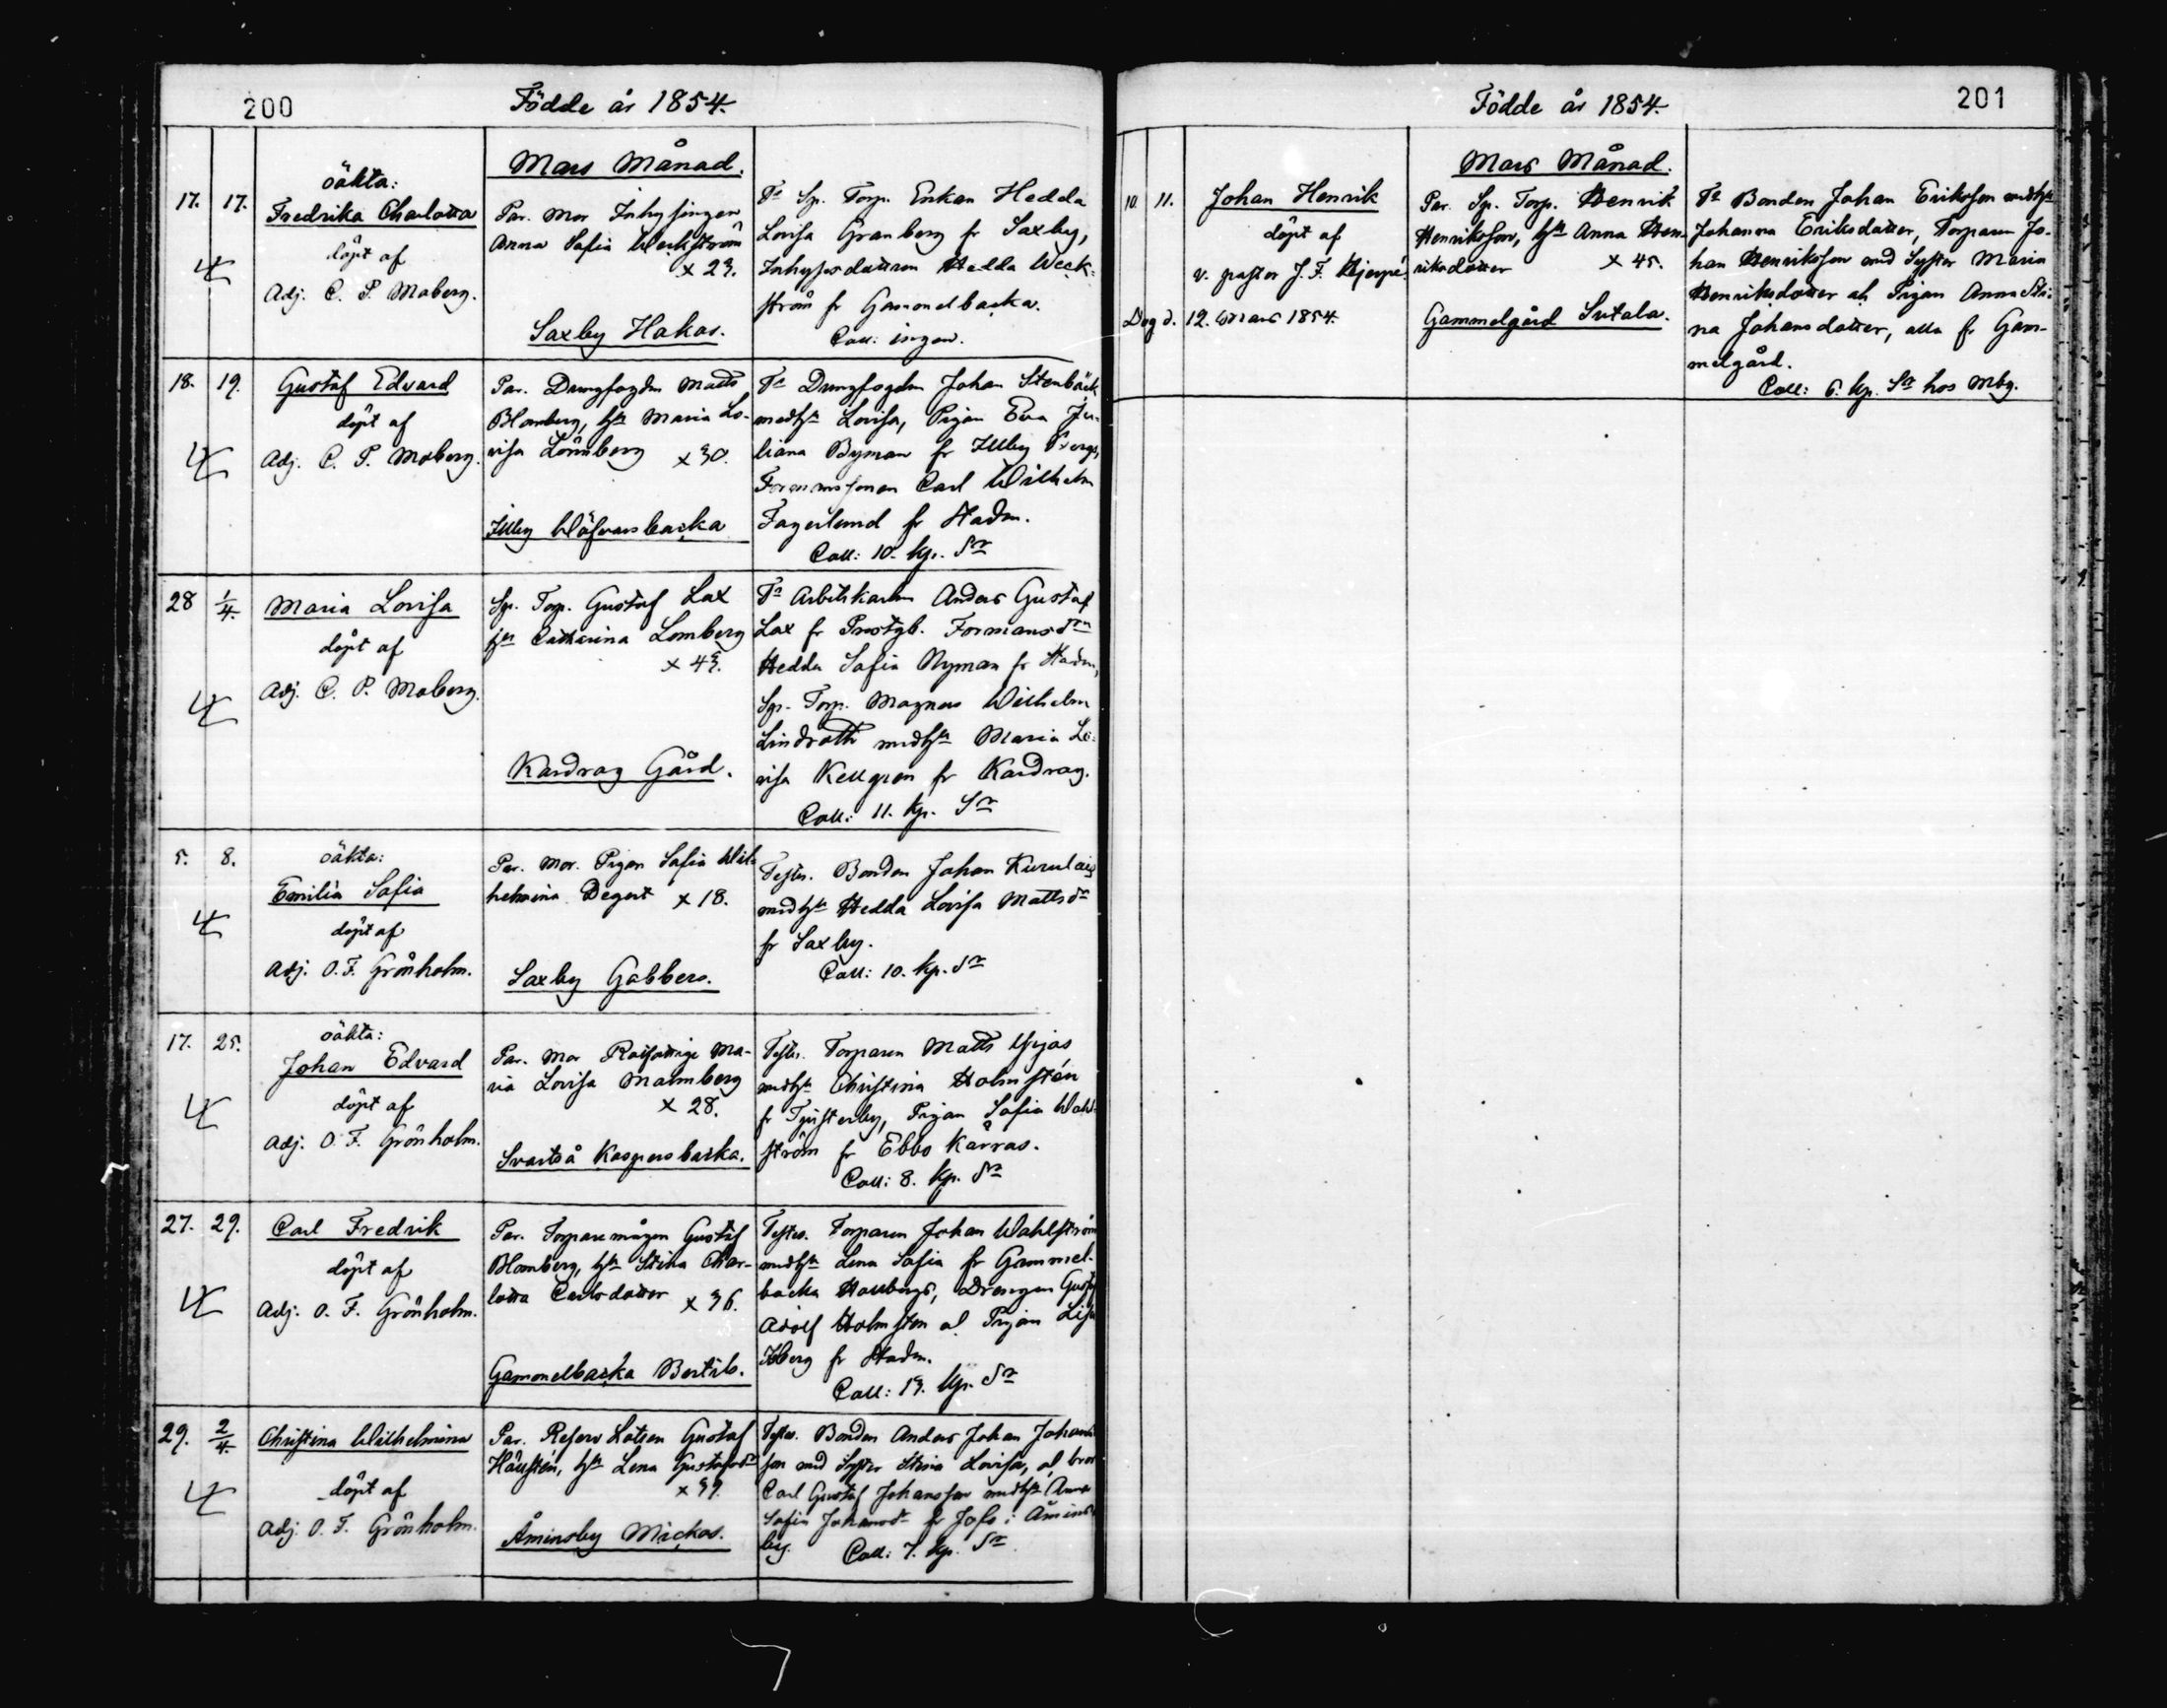 200
Födde år 1854.
Mars Månad.
17. 17.
oäkta:
Fredrika Charlotta
döpt af
Adj. C. P. Moberg.
Par. Mor Inhysingen
Anna Sofia Weckström
x 23.
Saxby Hakas.
Ts Sp. Torp. Enkan Hedda
Lovisa Granberg fr Saxby,
Inhysesdottren Hedda Weck-
ström fr Gammelbacka.
Coll: ingen.
18. 19.
Gustaf Edvard
döpt af
Adj. C. P. Moberg.
Par. Drängfogden Matts
Blomberg, hu Maria Lo-
visa Lönnberg x 30.
Illby
Ts Drängfogden Johan Stenbäck
med hu Lovisa, Pigan Eva Ju-
liana Byman fr Illby
Carl Wilhelm
Fagerlund fr Staden.
Coll: 10. kp. Sr
28 1/4.
Maria Lovisa
döpt af
Adj. C. P. Moberg.
Sp. Torp. Gustaf Lax
hu Catharina Lomberg
x 43.
Kardrag Gård.
Ts Arbetskarlen Anders Gustaf
Lax fr Prostgb. Formansdr
Hedda Sofia Nyman fr Staden,
Sp. Torp. Magnus Wilhelm
Lindroth med hu Maria Lo-
visa Kellgren fr Kardrag.
Coll: 11. kp. Sr
5. 8.
oäkta:
Emilia Sofia
döpt af
Adj. O. F. Grönholm.
Par. Mor. Pigan Sofia Wil-
helmina Degert x 18.
Saxby Gabbers.
Testes. Bonden Johan
med hu Hedda Lovisa Mattsdr
fr Saxby.
Coll: 10. kp. Sr
17. 25.
oäkta:
Johan Edvard
döpt af
Adj. O. F. Grönholm.
Par. Mor Ma-
ria Lovisa Malmberg
x 28.
Svartså Kaspersbacka.
Testes. Torparen Matts
med hu Christina Holmstén
fr Tjusterby, Pigan Sofia Wahl-
ström fr Ebbo Karras.
Coll: 8. kp. Sr
27. 29.
Carl Fredrik
döpt af
Adj. O. F. Grönholm.
Par. Torparemågen Gustaf
Blomberg, hu Stina Char-
lotta Carlsdotter x 36.
Gammelbacka Bertils.
Testes. Torparen Johan Wahlström
med hu Lena Sofia fr Gammel-
backa Drengen Gustaf
Adolf Holmsten o. Pigan Lisa
fr Staden.
Coll: 13. kp. Sr
29. 2/4.
Christina Wilhelmina
döpt af
Adj. O. F. Grönholm.
Par. Reserv Lotsen Gustaf
Hällstén, hu Lena Gustafsdr
x 39.
Åminsby Mickas.
Testes. Bonden Anders Johan Johans-
son med Syster Stina Lovisa, o. bror
Carl Gustaf Johansson med hu Anna
Sofia Johansdr fr Jofs i Åmins-
by. Coll: 7. kp. Sr
Födde år 1854.
201
Mars Månad.
10. 11.
Johan Henrik
döpt af
v. pastor J. F. Hjerpé.
Dog d. 12. Mars 1854.
Par. Sp. Torp. Henrik
Henriksson, hu Anna Hen-
riksdotter x 45.
Gammelgård Sutala.
Ts Bonden Johan Eriksson med hu
Johanna Eriksdotter, Torparen Jo-
han Henriksson med Syster Maria
Henriksdotter och Pigan Anna Sti-
na Johansdotter, alla fr Gam-
melgård.
Coll: 6. kp. Sr hos Mbg.